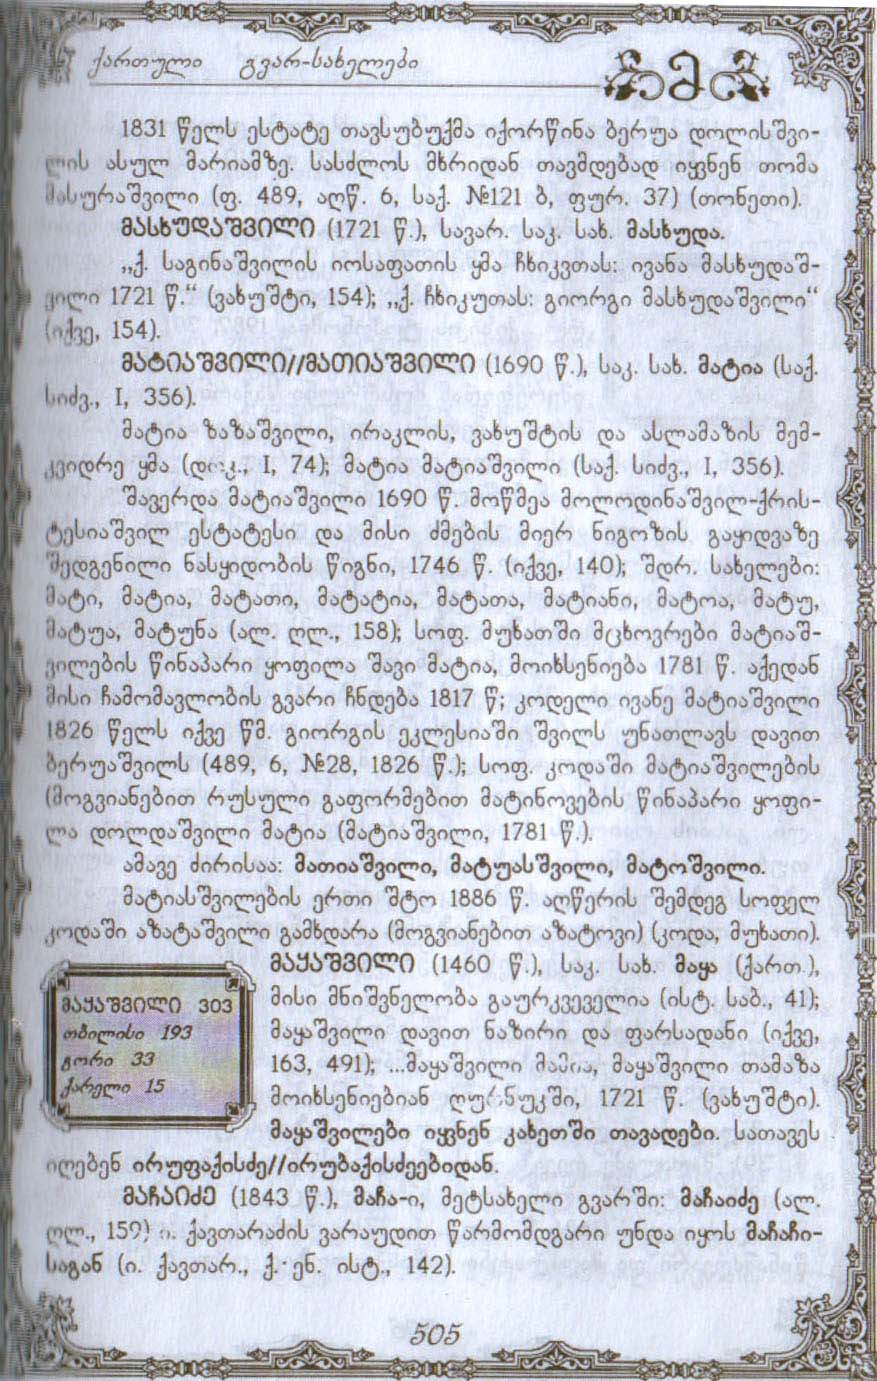 ქართული გვარ-სახელები
მ
1831 წელს ესტატე თავსუბუქმა იქორწინა ბერუა დოლისშვი-
ლის ასულ მარიამზე. სასძლოს მხრიდან თავმდებად იყვნენ თომა
მასურაშვილი (ფ. 489, აღწ. 6, საქ. №121 ბ, ფურ. 37) (თონეთი).
მასხუდაშვილი (1721 წ.), სავარ. საკ. სახ. მასხუდა.
„ქ. საგინაშვილის იოსაფათის ყმა ჩხიკვთას: ივანა მასხუდაშ-
ვილი 1721 წ.“ (ვახუშტი, 154); „ქ. ჩხიკუთას: გიორგი მასხუდაშვილი“
(იქვე, 154).
მატიაშვილი//მათიაშვილი (1690 წ.), საკ. სახ. მატია (საქ.
სიძვ., I, 356).
მატია ზაზაშვილი, ირაკლის, ვახუშტის და ასლამაზის მემ-
კვიდრე ყმა (დოკ., I, 74); მატია მატიაშვილი (საქ. სიძვ., I, 356).
შავერდა მატიაშვილი 1690 წ. მოწმეა მოლოდინაშვილ-ქრის-
ტესიაშვილ ესტატესი და მისი ძმების მიერ ნიგოზის გაყიდვაზე
შედგენილი ნასყიდობის წიგნი, 1746 წ. (იქვე, 140); შდრ. სახელები:
მატი, მატია, მატათი, მატატია, მატათა, მატიანი, მატოა, მატუ,
მატუა, მატუნა (ალ. ღლ., 158); სოფ. მუხათში მცხოვრები მატიაშ-
ვილების წინაპარი ყოფილა შავი მატია, მოიხსენიება 1781 წ. აქედან
მისი ჩამომავლობის გვარი ჩნდება 1817 წ; კოდელი ივანე მატიაშვილი
1826 წელს იქვე წმ. გიორგის ეკლესიაში შვილს უნათლავს დავით
ბერუაშვილს (489, 6, №28, 1826 წ.); სოფ. კოდაში მატიაშვილების
(მოგვიანებით რუსული გაფორმებით მატინოვების წინაპარი ყოფი-
ლა დოლდაშვილი მატია (მატიაშვილი, 1781 წ.).
ამავე ძირისაა: მათიაშვილი, მატუასშვილი, მატოშვილი.
მატიასშვილების ერთი შტო 1886 წ. აღწერის შემდეგ სოფელ
კოდაში აზატაშვილი გამხდარა (მოგვიანებით აზატოვი) (კოდა, მუხათი).
მაყაშვილი (1460 წ.), საკ. სახ. მაყა (ქართ.),
მისი მნიშვნელობა გაურკვეველია (ისტ. საბ., 41);
მაყაშვილი დავით ნაზირი და ფარსადანი (იქვე,
163, 491); ...მაყაშვილი მამია, მაყაშვილი თამაზა
მოიხსენიებიან ღურნუკში, 1721 წ. (ვახუშტი).
მაყაშვილები იყვნენ კახეთში თავადები. სათავეს
იღებენ ირუფაქისძე//ირუბაქისძეებიდან.
მაყაშვილი 303
თბილისი 193
გორი 33
ქარელი 15
მაჩაიძე (1843 წ.), მაჩა-ი, მეტსახელი გვარში: მაჩაიძე (ალ.
ღლ., 159) ი. ქავთარაძის ვარაუდით წარმომდგარი უნდა იყოს მაჩაჩი-
საგან (ი. ქავთარ., ქ. ენ. ისტ., 142).
505